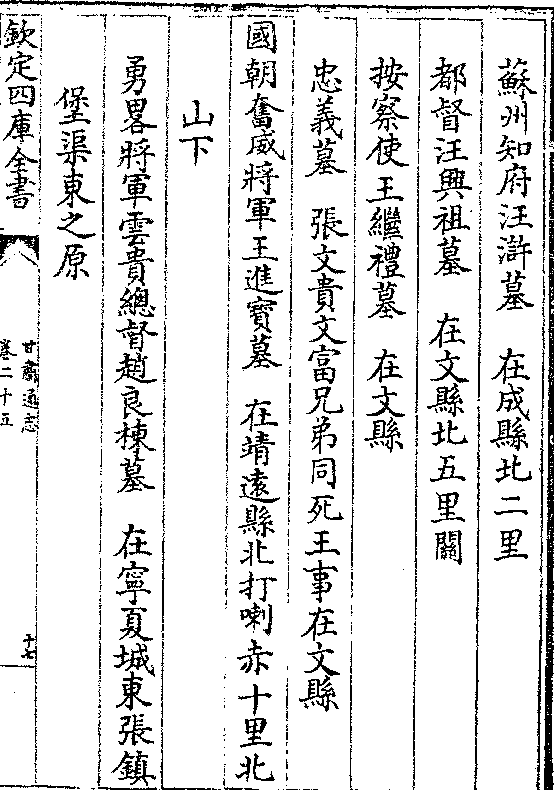 蘇州知府汪滸墓　在成縣北二里
都督汪興祖墓　在文縣北五里關
按察使王繼禮墓　在文縣
忠義墓　張文貴文富兄弟同死王事在文縣
國朝奮威將軍王進寶墓　在靖遠縣北打喇赤十里北
山下
勇畧將軍雲貴總督趙良棟墓　在寧夏城東張鎮
堡渠東之原
欽定四庫全書
甘肅通志
卷二十五
十七